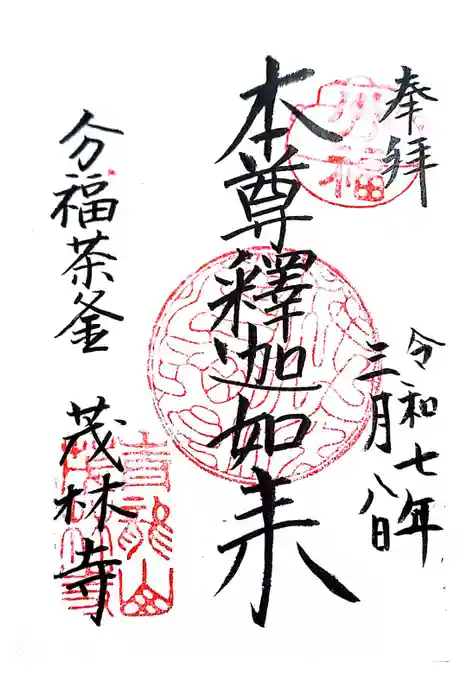 奉拝
令和七年
三月八日
本尊釋迦如来
分福茶釜 茂林寺
分福
青龍山
茂林寺